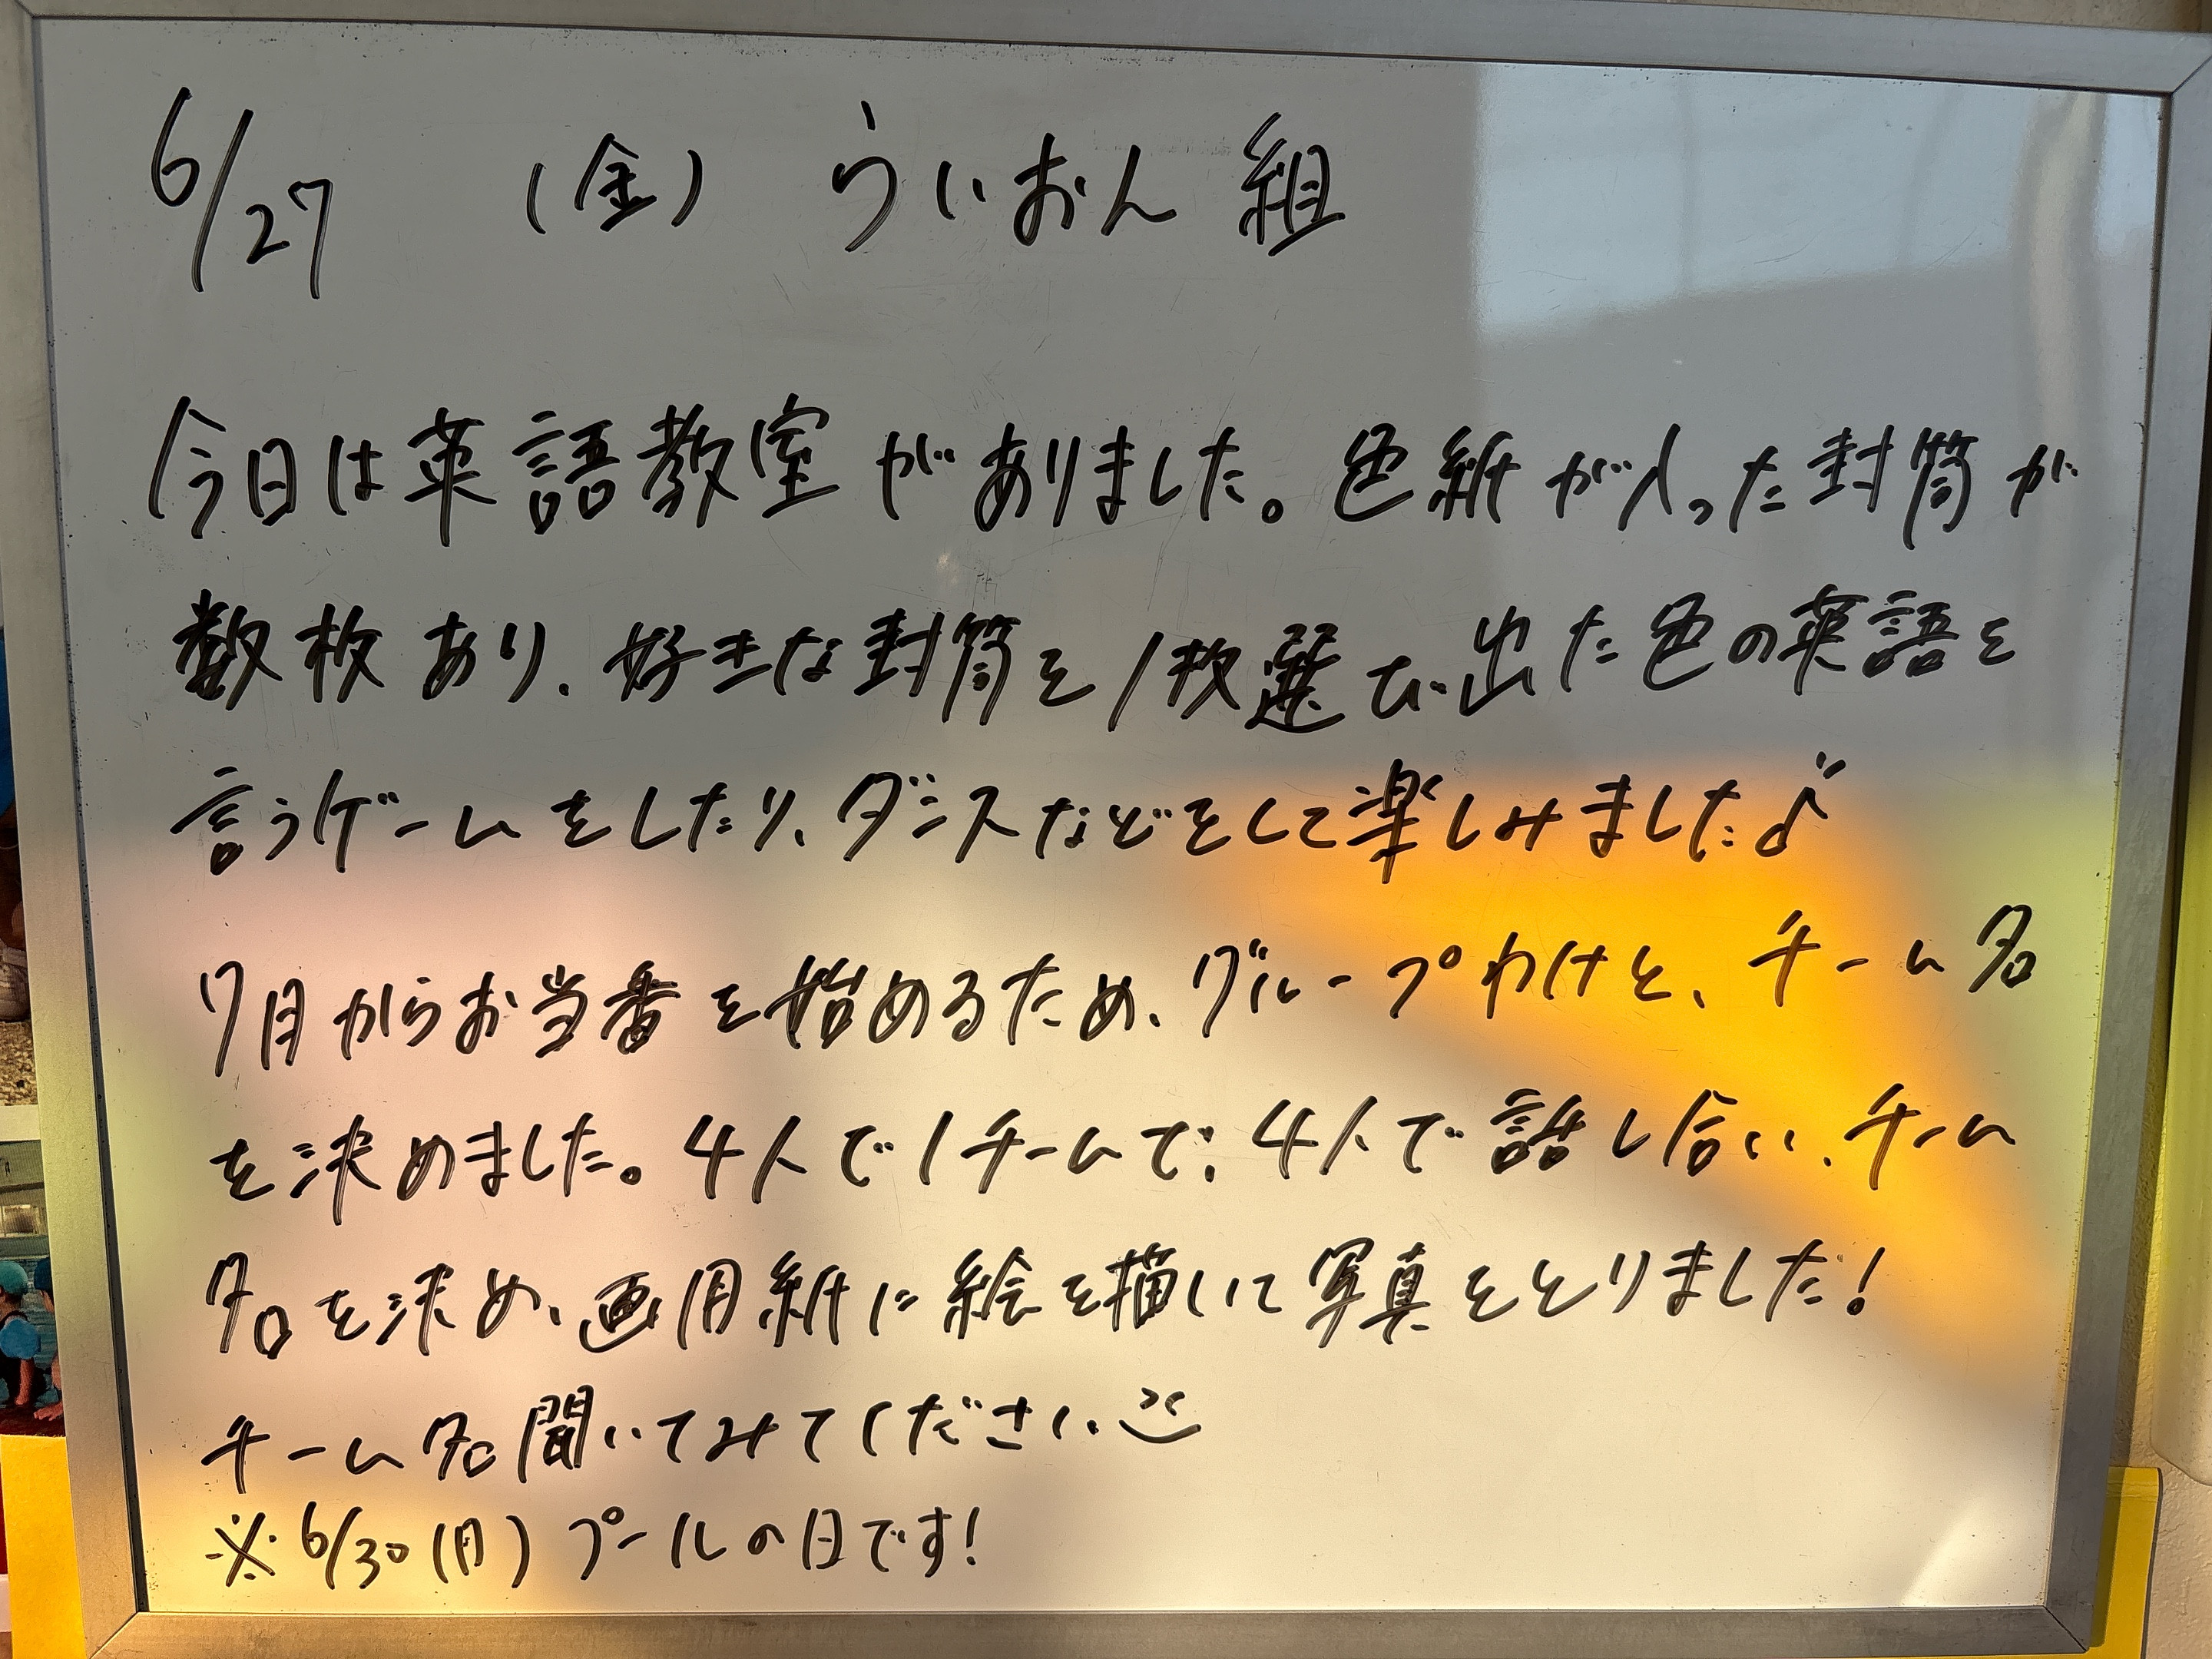 6/27 (金) らいおん組
今日は英語教室がありました。色紙が入った封筒が
数枚あり、好きな封筒を1枚選び、出た色の英語を
言うゲームをしたり、ダンスなどをして楽しみました♪
7月からお当番を始めるため、グループわけと、チーム名
を決めました。4人で1チームで、4人で話し合い、チーム
名を決め、画用紙に絵を描いて写真をとりました!
チーム名聞いてみてください
※6/30(月)プールの日です!